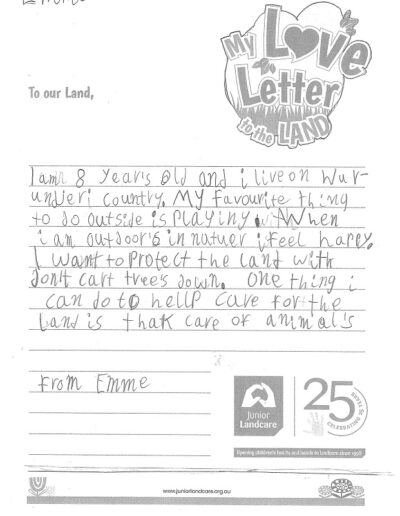 My Love
Letter
to the LAND
To our Land,
I am 8 year's old and i live on Wur-
underi country. My favourite thing
to do outside is playing. When
i am outdoor's in natuer i feel happy.
I want to protect the land with
don't cart tree's down. one thing i
can do to hellp care for the
Land is thak care of animal's
From Emme
Junior
Landcare
25 YEARS
CELEBRATING
Opening children's hearts and hands to landcare since 1998
www.juniorlandcare.org.au